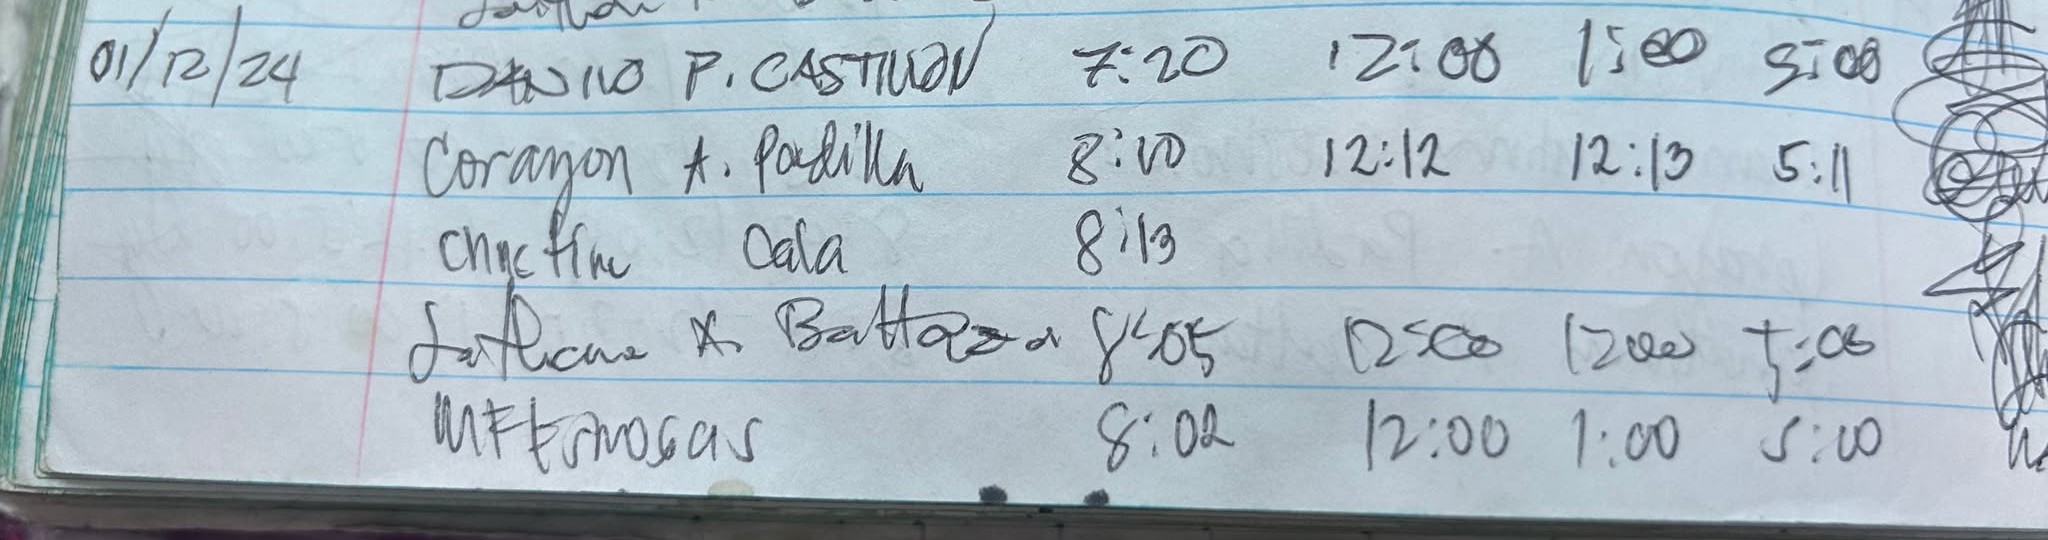 01/12/24 DANILO P. CASTILLON 7:20 12:00 1:00 5:00
Corazon A. Padilla 8:10 12:12 12:13 5:11
Cala 8:13
A. 8:05 12:00 1200 5:00
8:02 12:00 1:00 5:00